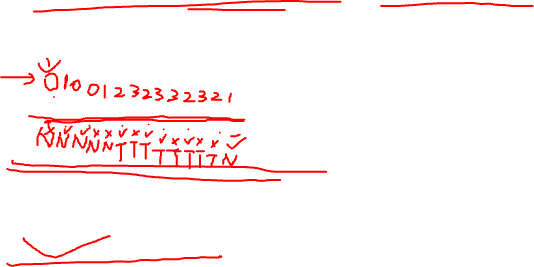 01001232332321
NNNNNTTTTTTTTN